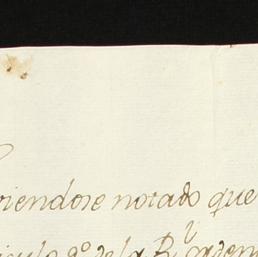 iendose notado que
iculo 9º de la Rl orden